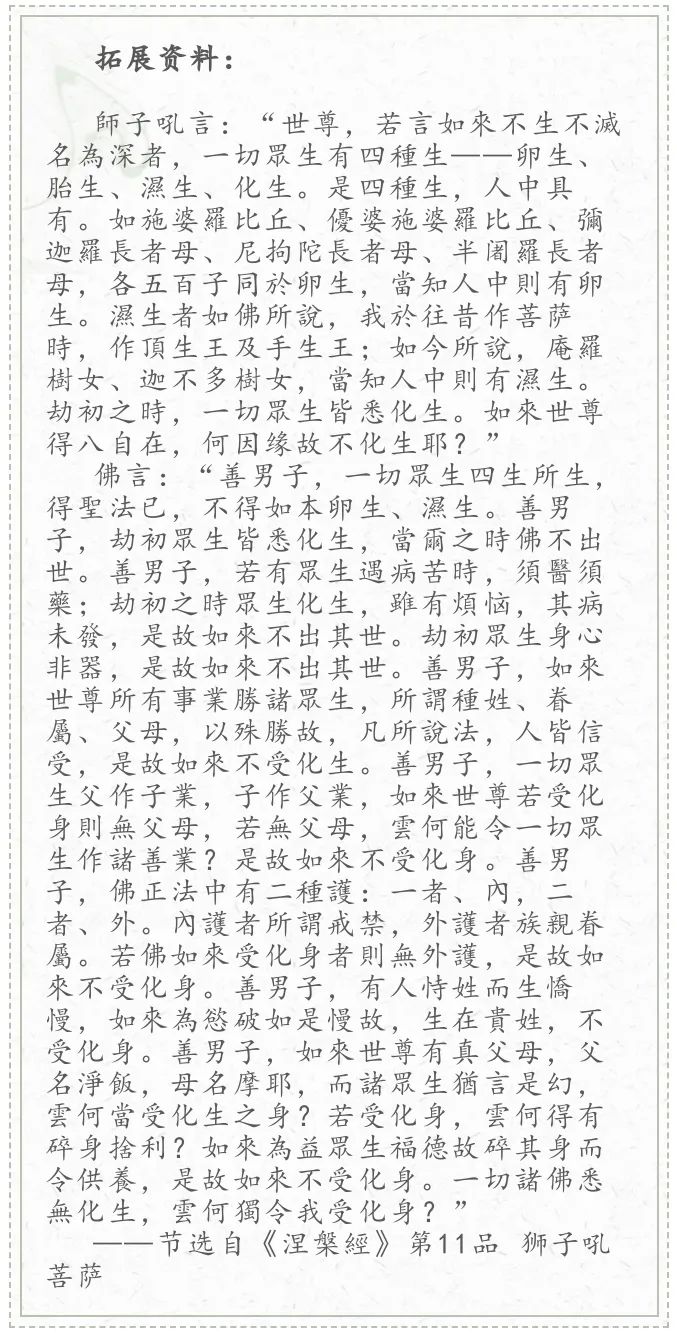 拓展资料：
師子吼言：“世尊，若言如來不生不滅
名為深者，一切眾生有四種生——卵生、
胎生、濕生、化生。是四種生，人中具
有。如施婆羅比丘、優婆施婆羅比丘、彌
迦羅長者母、尼拘陀長者母、半闍羅長者
母，各五百子同於卵生，當知人中則有卵
生。濕生者如佛所說，我於往昔作菩萨
時，作頂生王及手生王；如今所說，庵羅
樹女、迦不多樹女，當知人中則有濕生。
劫初之時，一切眾生皆悉化生。如來世尊
得八自在，何因缘故不化生耶？”
佛言：“善男子，一切眾生四生所生，
得聖法已，不得如本卵生、濕生。善男
子，劫初眾生皆悉化生，當爾之時佛不出
世。善男子，若有眾生遇病苦時，須醫須
藥；劫初之時眾生化生，雖有煩惱，其病
未發，是故如來不出其世。劫初眾生身心
非器，是故如來不出其世。善男子，如來
世尊所有事業勝諸眾生，所謂種姓、眷
屬、父母，以殊勝故，凡所說法，人皆信
受，是故如來不受化生。善男子，一切眾
生父作子業，子作父業，如來世尊若受化
身則無父母，若無父母，雲何能令一切眾
生作諸善業？是故如來不受化身。善男
子，佛正法中有二種護：一者、內，二
者、外。內護者所謂戒禁，外護者族親眷
屬。若佛如來受化身者則無外護，是故如
來不受化身。善男子，有人恃姓而生憍
慢，如來為慾破如是慢故，生在貴姓，不
受化身。善男子，如來世尊有真父母，父
名淨飯，母名摩耶，而諸眾生猶言是幻，
雲何當受化生之身？若受化身，雲何得有
碎身捨利？如來為益眾生福德故碎其身而
令供養，是故如來不受化身。一切諸佛悉
無化生，雲何獨令我受化身？”
——节选自《涅槃經》第11品 狮子吼
菩萨